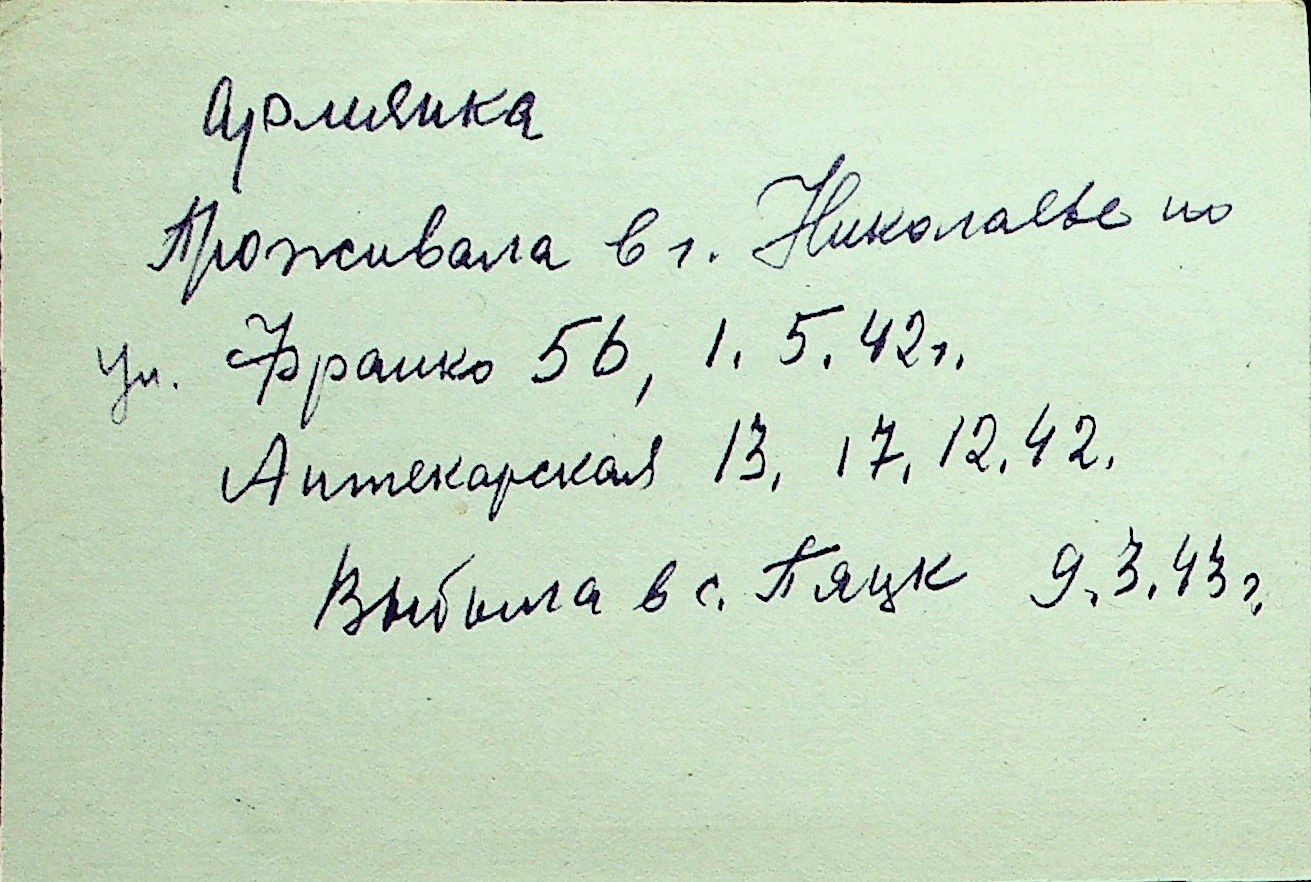 Армянка
Проживала в г. Николаеве по
ул. Франко 56, 1. 5. 42 г.
Аптекарская 13, 17. 12. 42.
Выбыла в с. Пяцк 9. 3. 43 г.